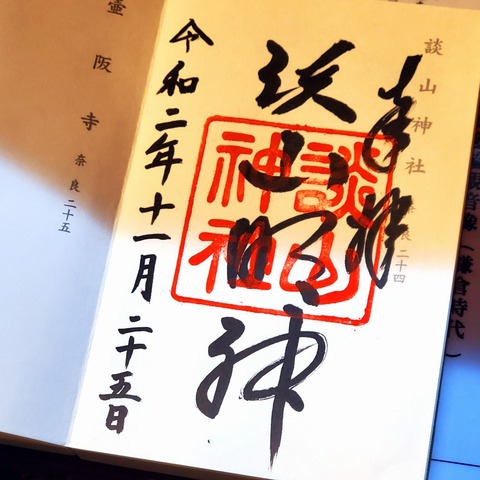 音像(鎌倉時代)
談山神社 奈良二十四
奉拝
談山明神
談山
神社
令和二年十一月二十五日
壺阪寺 奈良二十五